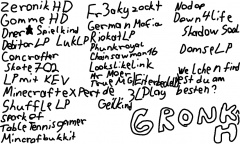 ZeronikHD
GommeHD
Dner & Spielkind
Debitor LP LukLP
Concrafter
Skate702
LPmitKEV
MinecraftExperte
ShuffleLP
Sparkof
TableTennisgamer
Mincraftbukkit
Fr3akyzockt
GermanMafia
RiokatLP
Phunkroyal
Chainsawman16
Lookslikelink
Hr Moer
True MG
3/Play
Geilkind
Nadop
Down4life
ShadowSoal
DamseLP
Welchen find
est du am
besten?
GRONKH